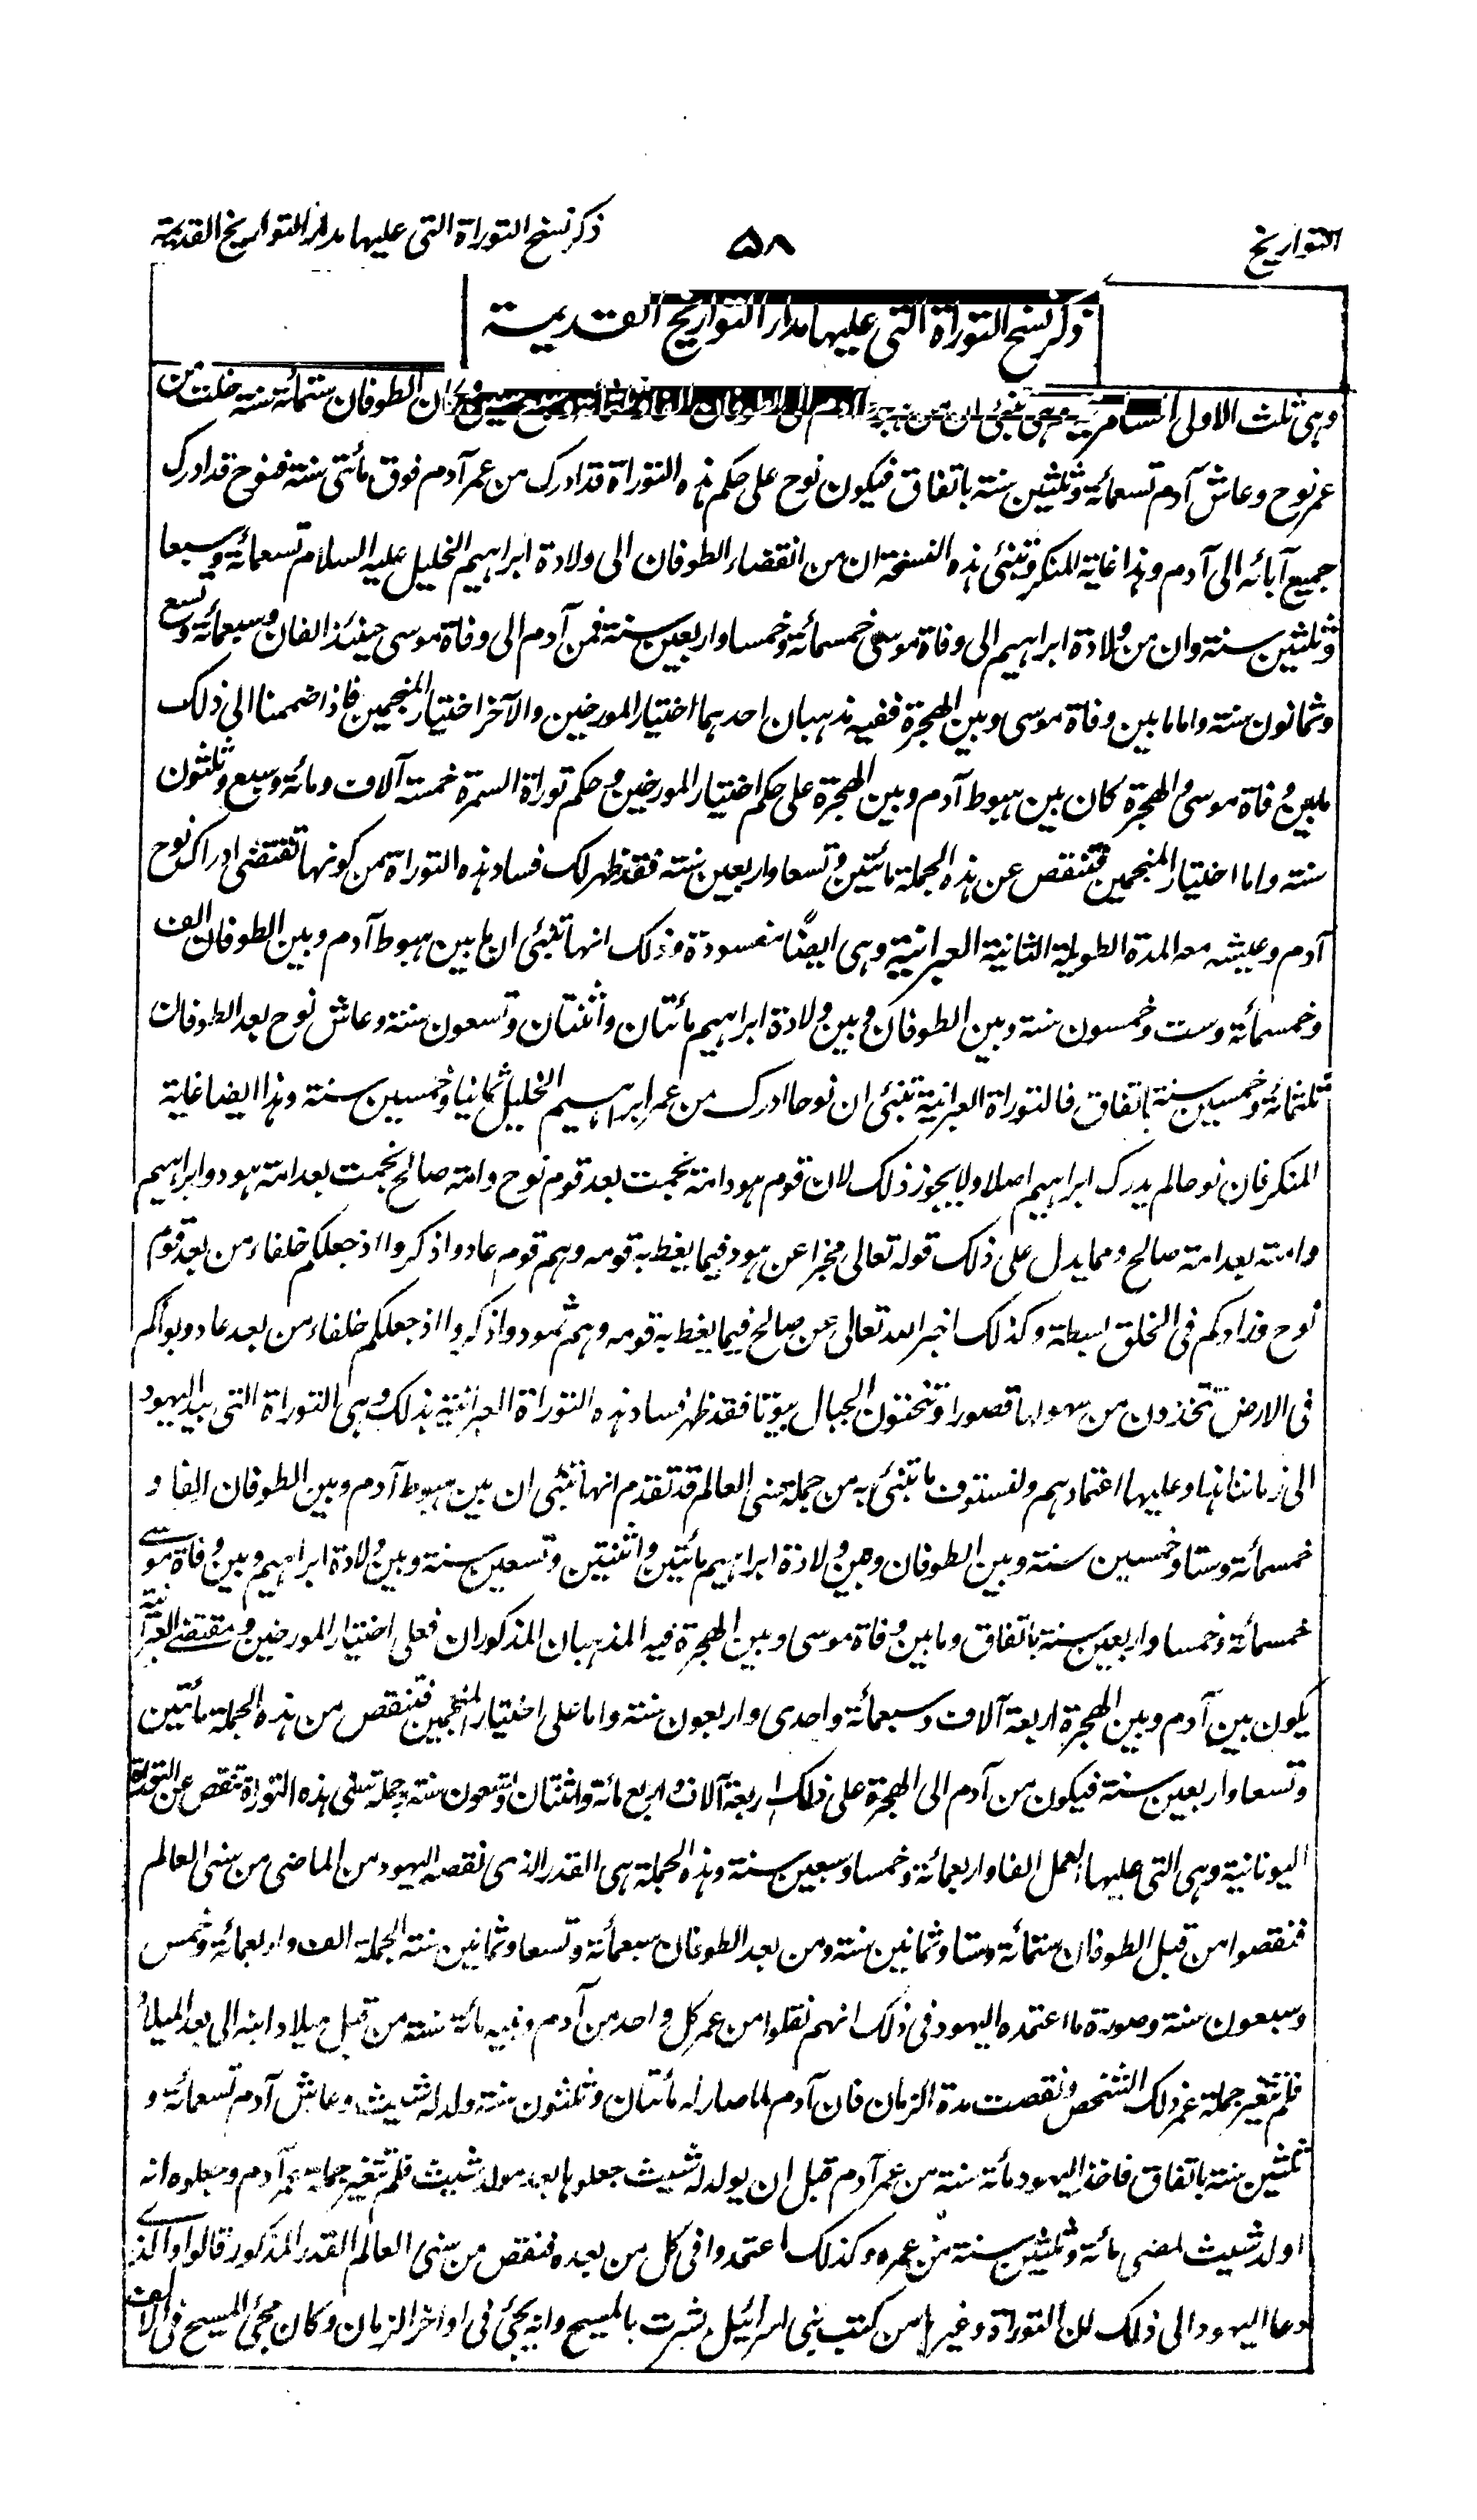 التواريخ
۵۸
ذكر نسخ التوراة التى عليها مدار التواريخ القديمة
ذكر نسخ التوراة التى عليها مدار التواريخ القديمة
وہى ثلث الاولى السامرية وہى تنبئ ان من ہبوط آدم الى الطوفان الفا وثلثمائة وسبع سنين وكان الطوفان ستمائة سنة خلت من
عمر نوح وعاش آدم تسعمائة وثلثين سنة باتفاق فيكون نوح على حكم ہذہ التوراة قد ادرك من عمر آدم فوق مأتى سنة فنوح قد ادرك
جميع آبائہ الى آدم وہذا غاية المنكر وتنبئ ہذہ النسخة ان من انقضاء الطوفان الى ولادة ابراہيم الخليل عليہ السلام تسعمائة وسبعا
وثلثين سنة وان من ولادة ابراہيم الى وفاة موسى خمسمائة وخمسا واربعين سنة فمن آدم الى وفاة موسى حينئذ الفان وسبعمائة وتسع
وثمانون سنة واما ما بين وفاة موسى وبين الهجرة ففيہ مذہبان احدہما اختيار المورخين والآخر اختيار المنجمين فاذا ضممنا الى ذلك
مابين وفاة موسى والهجرة كان بين ہبوط آدم وبين الهجرة على حكم اختيار المورخين وحكم توراة السمرة خمسة آلاف ومائة وسبع وثلثون
سنة واما اختيار المنجمين فتنقص عن ہذہ الجملة مائتين وتسعا واربعين سنة فقد ظهر لك فساد ہذہ التوراة من كونہا تقتضى ادراك نوح
آدم وعيشہ معہ المدة الطويلة الثانية العبرانية وہى ايضًا مفسودة وذلك انہا تنبئ ان ما بين ہبوط آدم وبين الطوفان الف
وخمسمائة وست وخمسون سنة وبين الطوفان وبين ولادة ابراہيم مائتان واثنتان وتسعون سنة وعاش نوح بعد الطوفان
ثلثمائة وخمسين سنة باتفاق فالتوراة العبرانية تنبئ ان نوحا ادرك من عمر ابراہيم الخليل ثمانيا وخمسين سنة وہذا ايضا غاية
المنكر فان نوحا لم يدرك ابراہيم اصلا ولا يجوز ذلك لان قوم ہود امة نجمت بعد قوم نوح وامة صالح نجمت بعد امة ہود وابراہيم
وامتہ بعد امة صالح ومما يدل على ذلك قولہ تعالى مخبرا عن ہود فيما يعظ بہ قومہ وہم قوم عاد واذكروا اذ جعلكم خلفاء من بعد قوم
نوح وزادكم فى الخلق بسطة وكذلك اخبر اللہ تعالى عن صالح فيما يعظ بہ قومہ وہم ثمود واذكروا اذ جعلكم خلفاء من بعد عاد وبوأكم
فى الارض تتخذون من سہولہا قصورا وتنحتون الجبال بيوتا فقد ظہر فساد ہذہ التوراة العبرانية بذلك وہى التوراة التى بيد اليہود
الى زماننا ہذا وعليہا اعتمادہم ولنستوف ما تنبئ بہ من جملة سنى العالم قد تقدم انہا تنبئ ان بين ہبوط آدم وبين الطوفان الفا و
خمسمائة وستا وخمسين سنة وبين الطوفان وبين ولادة ابراہيم مائتين واثنتين وتسعين سنة وبين ولادة ابراہيم وبين وفاة موسے
خمسمائة وخمسا واربعين سنة باتفاق وما بين وفاة موسى وبين الهجرة فيہ المذہبان المذكوران فعلى اختيار المورخين ومقتضى العبرانية
يكون بين آدم وبين الهجرة اربعة آلاف وسبعمائة واحدى واربعون سنة واما على اختيار المنجمين فتنقص من ہذہ الجملة مائتين
وتسعا واربعين سنة فيكون من آدم الى الهجرة على ذلك اربعة آلاف واربع مائة واثنتان وتسعون سنة وجملة سنى ہذہ التوراة تنقص عن التوراة
اليونانية وہى التى عليہا العمل الفا واربعمائة وخمسا وسبعين سنة وہذہ الجملة ہى القدر الذى نقصہ اليہود من الماضى من سنى العالم
فنقصوا من قبل الطوفان ستمائة وستا وثمانين سنة ومن بعد الطوفان سبعمائة وتسعا وثمانين سنة الجملة الف واربعمائة وخمس
وسبعون سنة وصورة ما اعتمدہ اليہود فى ذلك انہم نقلوا من عمر كل واحد من آدم وبنيہ مائة سنة من قبل ميلاد ابنہ الى بعد الميلاد
فلم تتغير جملة عمر ذلك الشخص ونقصت مدة الزمان فان آدم لما صار لہ مائتان وثلثون سنة ولد لہ شيث وعاش آدم تسعمائة و
ثلثين سنة باتفاق فاخذ اليہود مائة سنة من عمر آدم قبل ان يولد لہ شيث جعلوہا بعد مولد شيث فلم تتغير جملة عمر آدم وجعلوہ انہ
اولد شيث لمضى مائة وثلثين سنة من عمرہ وكذلك اعتمدوا فى كل من بعدہ فنقص من سنى العالم القدر المذكور قالوا والذے
دعا اليہود الى ذلك ان التوراة وغيرہا من كتب بنى اسرائيل بشرت بالمسيح وانہ يجئ فى اواخر الزمان وكان مجئ المسيح فى الالف